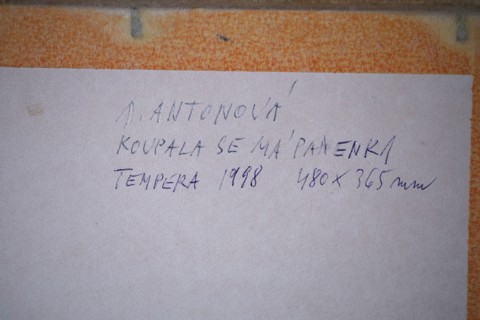 ANTONOVÁ
KOUPALA SE MÁ PANENKA
TEMPERA 1998 480 x 365 mm